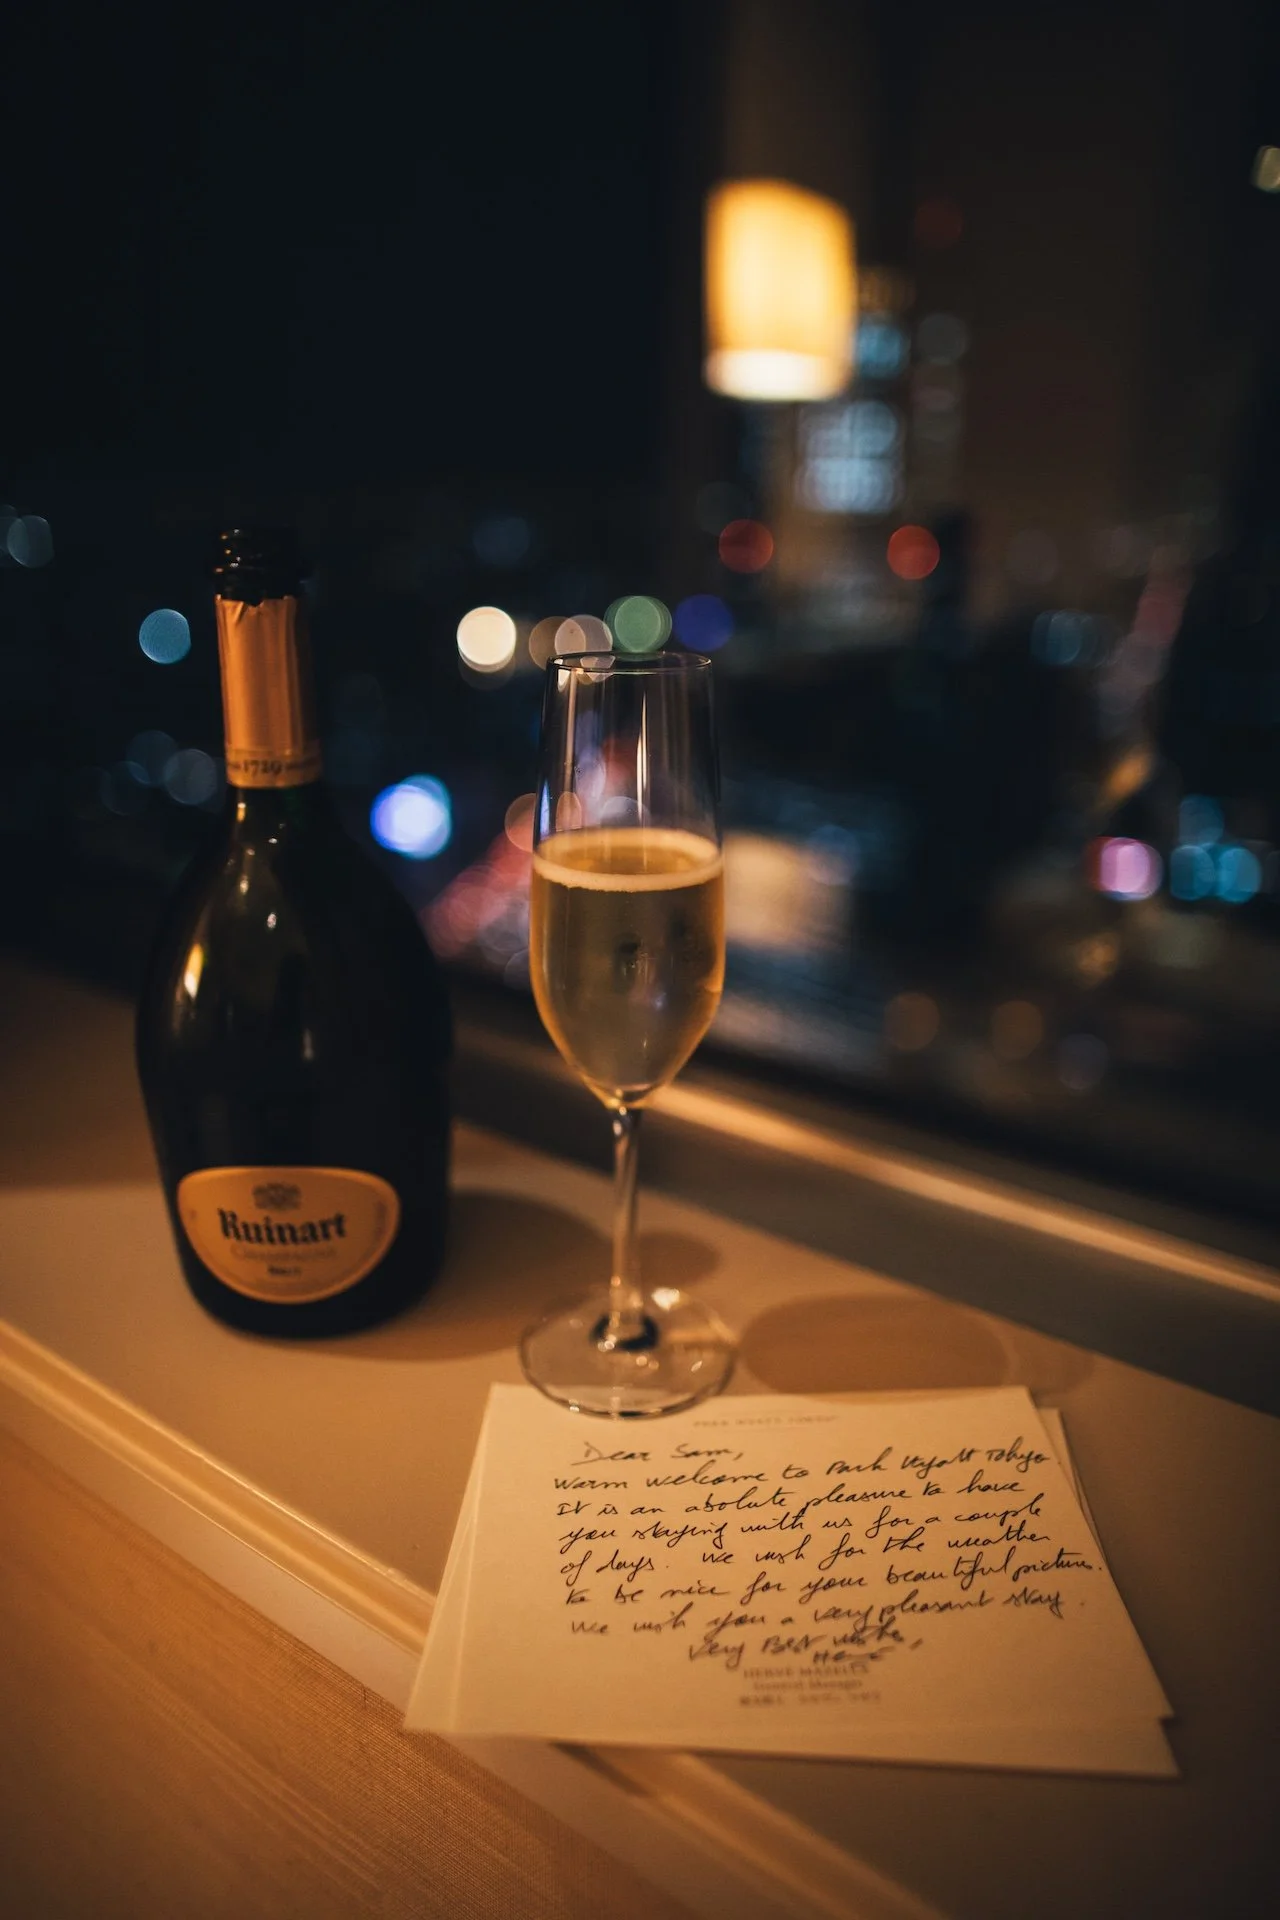 1729
Ruinart
CHAMPAGNE
Brut
PARK HYATT TOKYO
Dear Sam,
Warm welcome to Park Hyatt Tokyo.
It is an absolute pleasure to have
you staying with us for a couple
of days. We wish for the weather
to be nice for your beautiful pictures.
We wish you a very pleasant stay.
Very Best wishes,
Herve
HERVÉ MAZELLA
General Manager